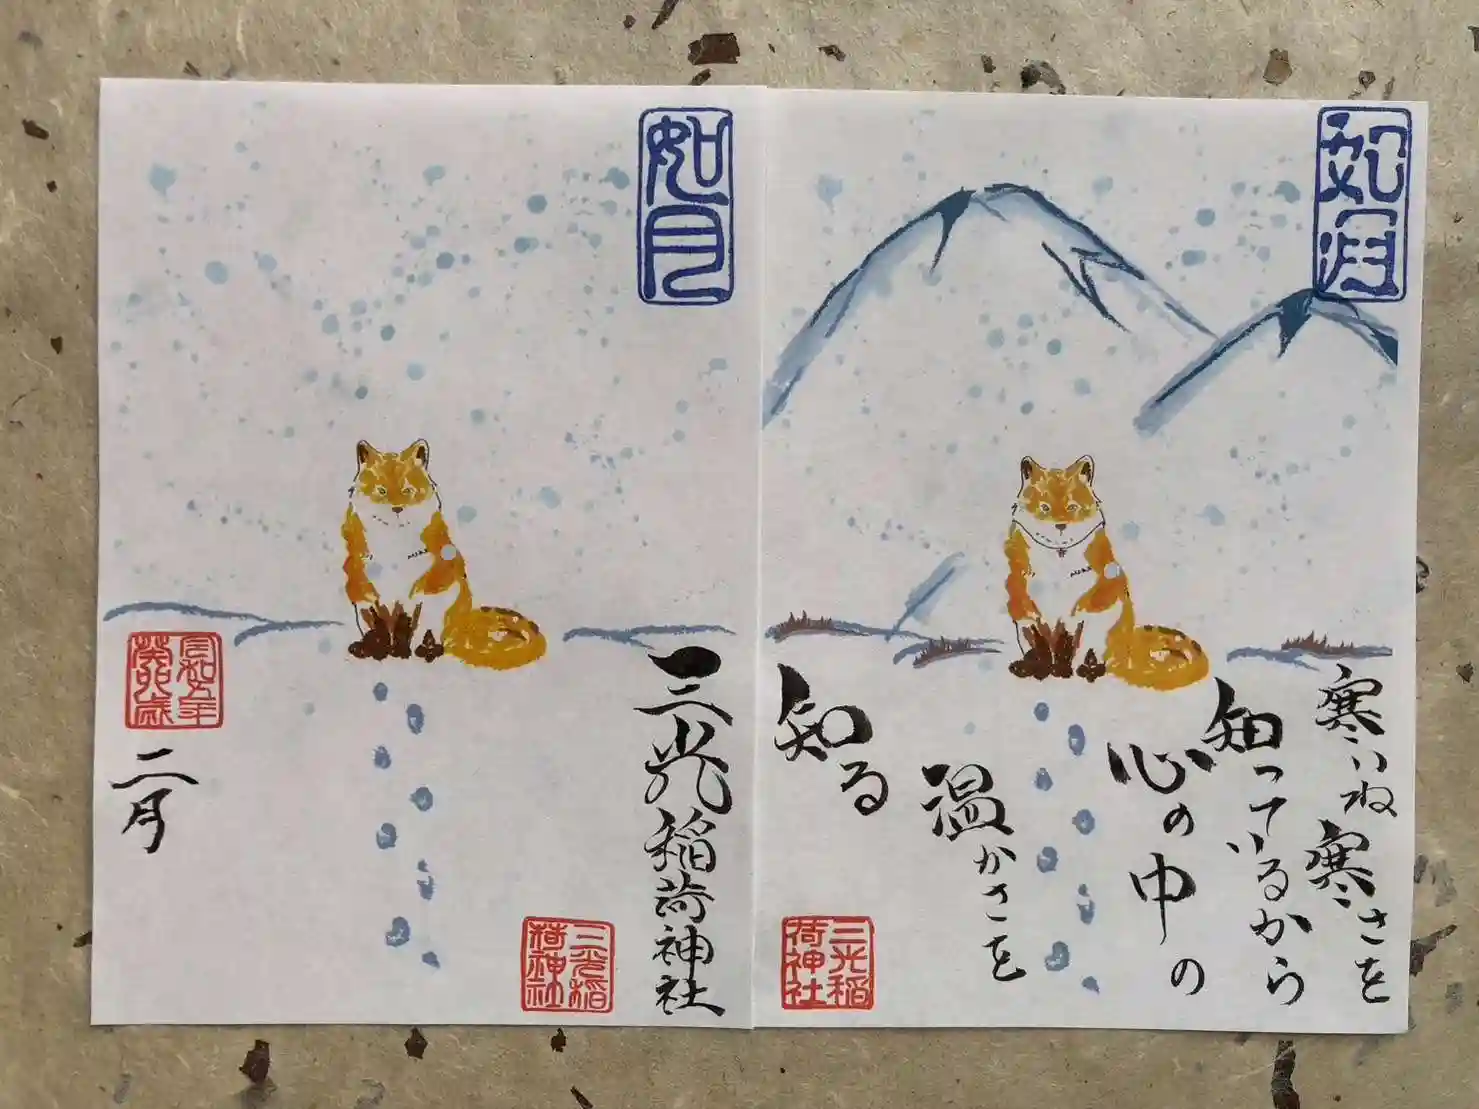 如月
三光稲荷神社
三光稲荷神社
令和五年
癸卯歳
二月
如月
寒いね寒さを
知っているから
心の中の
温かさを
知る
三光稲荷神社